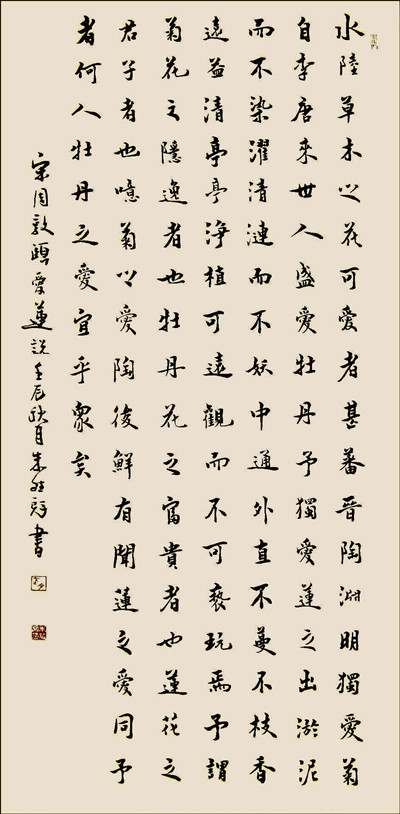 水陸草木之花可愛者甚蕃晉陶淵明獨愛菊
自李唐來世人盛愛牡丹予獨愛蓮之出淤泥
而不染濯清漣而不妖中通外直不蔓不枝香
遠益清亭亭淨植可遠觀而不可褻玩焉予謂
菊花之隱逸者也牡丹花之富貴者也蓮花之
君子者也噫菊之愛陶後鮮有聞蓮之愛同予
者何人牡丹之愛宜乎眾矣
宋周敦頤愛蓮説壬辰秋月朱書